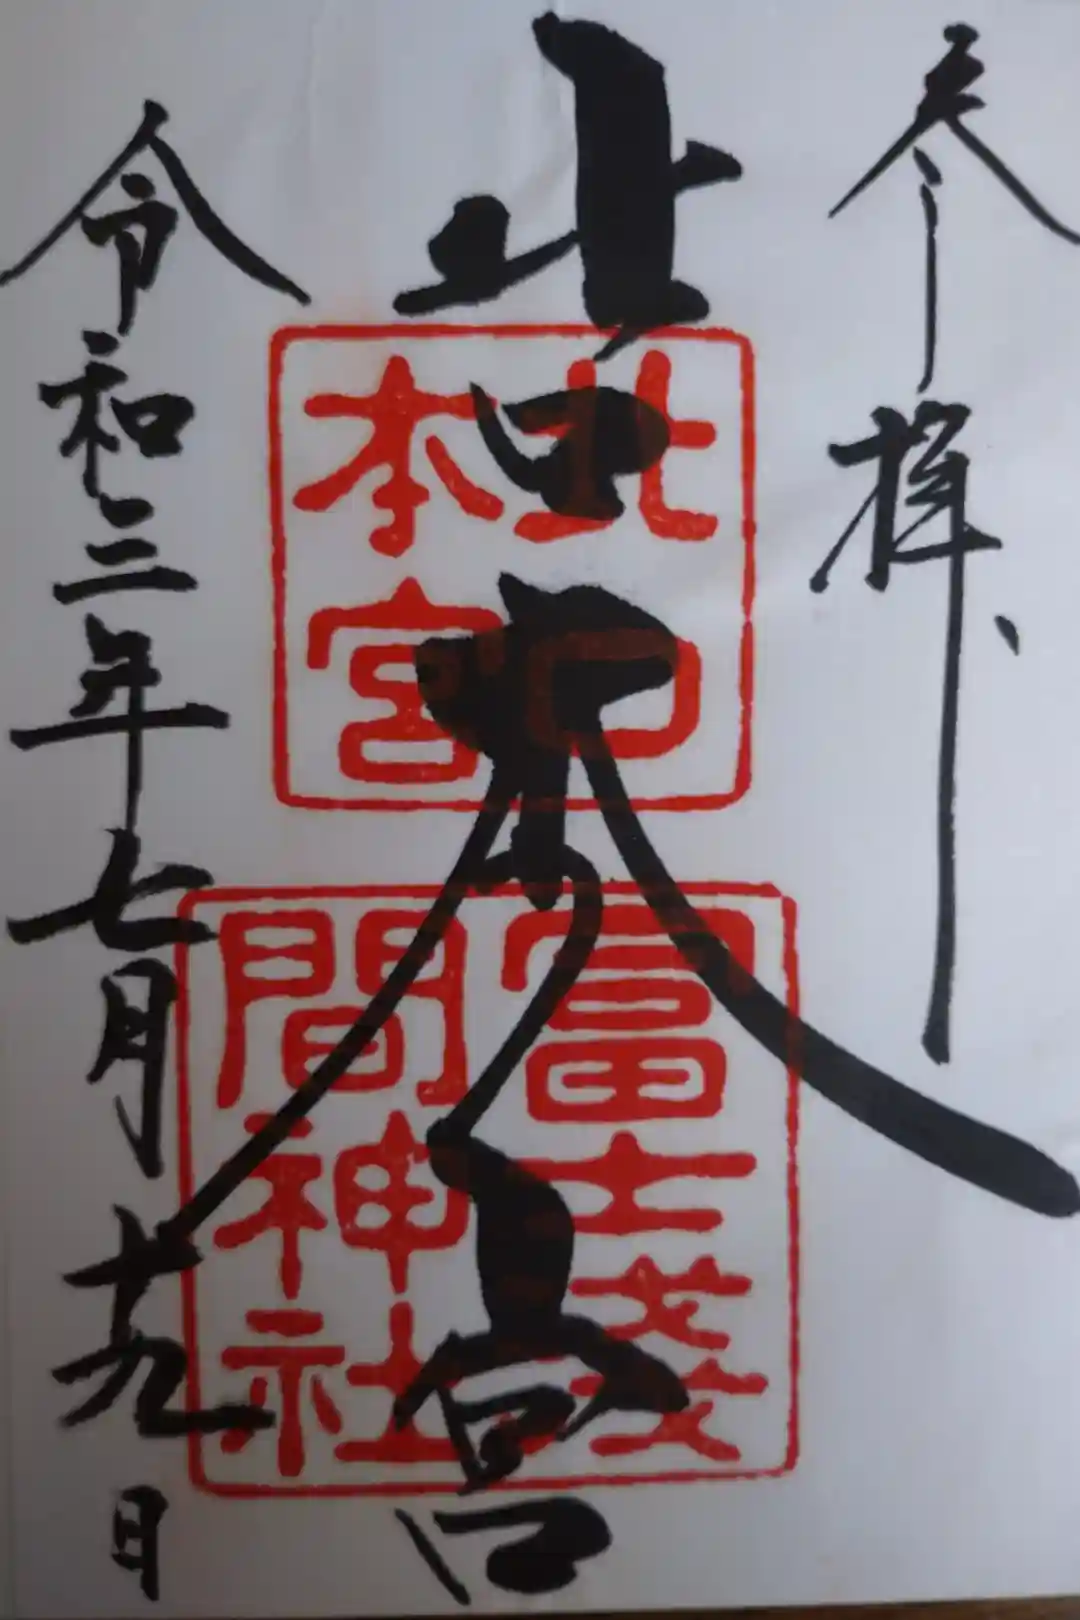 参拝
北口本宮
令和三年七月十九日
北口
本宮
冨士浅
間神社